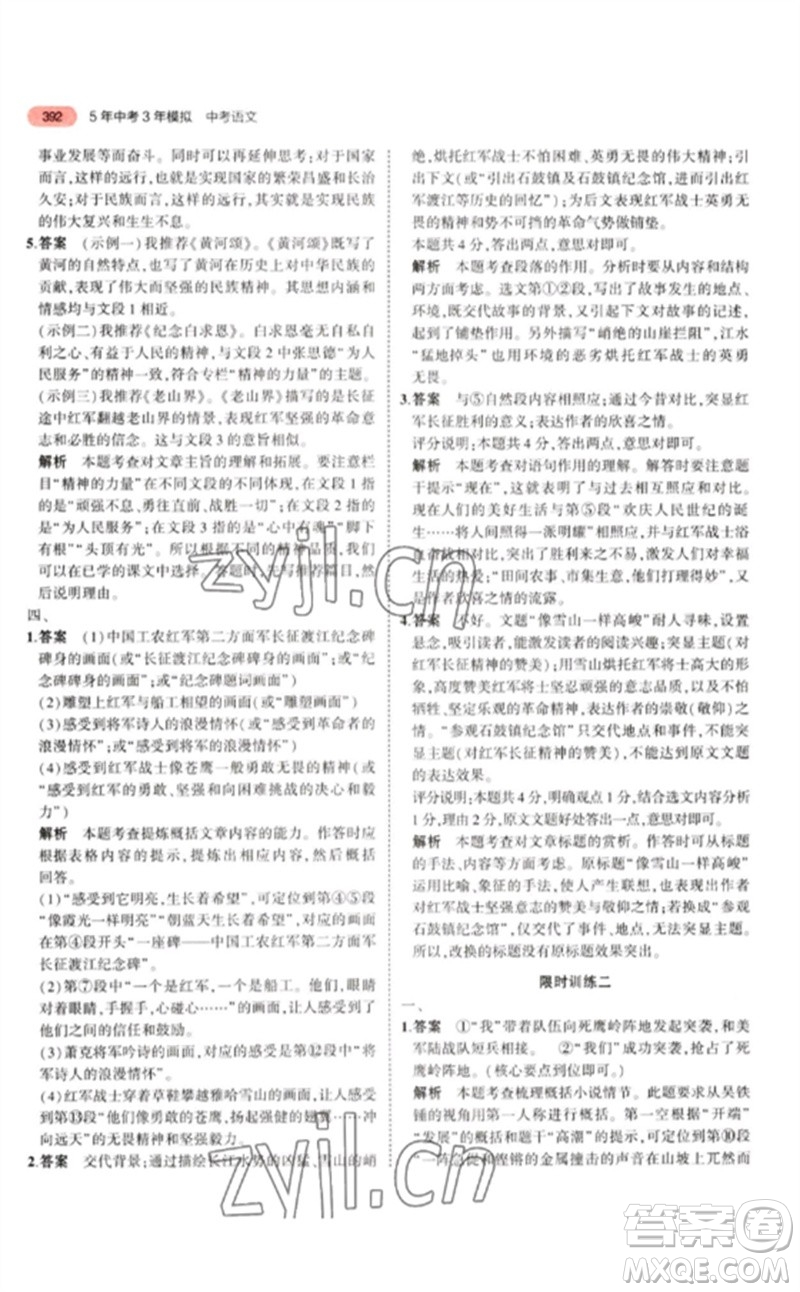 392 5年中考3年模拟 中考语文
事业发展等而奋斗。同时可以再延伸思考:对于国家
而言,这样的远行,就是实现国家的繁荣昌盛和长治
久安;对于民族而言,这样的远行,就是实现民族
的伟大复兴和生生不息。
5.答案 (示例一)我推荐《黄河颂》。《黄河颂》既写了
黄河的自然特点,也写了黄河在历史上对中华民族的
贡献,表现了伟大而坚强的民族精神,其主旨和
情感均与文段1相近。
(示例二)我推荐《纪念白求恩》。白求恩毫无自私自
利之心、有益于人民的精神,与文段2中张思德“为人
民服务”的精神一致,符合“精神的力量”的主题。
(示例三)我推荐《老山界》。《老山界》描写的是长征
途中红军翻越老山界的情景,表现红军坚强的革命意
志和必胜的信念。这与文段3的意旨相似。
解析 本题考查对文章主旨的理解和拓展。要注意栏
目“精神的力量”在不同文段的不同体现,在文段1中
是“顽强不息,勇往直前,战胜一切”;在文段2中是
“为人民服务”;在文段3中是指“心中有魂”“脚下
有根”“头顶有光”。所以,根据不同的精神品质,我
们可以在已学的课文中选择。答题时,先写推荐篇目,然
后说明理由。
四、
1.答案 (1)中国工农红军第二方面军长征渡江纪念碑
碑身的画面(或“长征渡江纪念碑碑身的画面”;或“
纪念碑碑身的画面”;或“纪念碑题词画面”)
(2)雕塑上红军与船工相望的画面(或“雕塑画面”)
(3)感受到将军诗人的浪漫情怀(或“感受到革命者的
浪漫情怀”;或“感受到将军的浪漫情怀”)
(4)感受到红军战士像苍鹰一般勇敢无畏的精神(或“
感受到红军的勇敢、坚强和向困难挑战的决心和毅
力”)
解析 本题考查提炼概括文章内容的能力。作答时应
根据表格内容的提示,提炼出相关的画面,进行概括
回答。
(1)“感受到它明亮,生长着希望”,可定位到第④⑤段
“像霞光一样灿烂”“朝蓝天生长着希望”的画面,出
在第④段开头“一座碑——中国工农红军第二方面军
长征渡江纪念碑”。
(2)第⑦段“一个是红军,一个是船工。他们,眼睛对
着眼睛,手握手,心碰心……”的画面,让人感受到了
他们之间的信任和鼓励。
(3)萧克将军吟诗的画面,根据第⑫段中内容概括。
(4)红军战士穿着草鞋攀越雅哈雪山的画面,可定位
到第⑬段“像勇敢的苍鹰,扬起强健的翅翼……冲
向远天”的无畏精神和坚强毅力。
2.答案 交代背景;通过描绘长江水势的凶猛、雪山的峭
绝,烘托红军战士不怕困难、英勇无畏的伟大精神;引
出下文(或“引出石鼓镇及石鼓镇纪念馆”,或“引出对红
军渡江等历史的回忆”);为后文表现红军战士英勇无
畏的精神和势不可挡的革命气势做铺垫。
本题共4分,答出两点,意对即可。
解析 本题考查段落的作用。分析时要从内容和结构
两方面考虑。选文第①②段,写出了故事发生的地点、
环境,既交代故事的背景,又引起下文对故事的记述,
起到了铺垫作用。另外描写“峭绝的山崖拦阻”,江水
“猛地掉头”也用环境的恶劣烘托红军战士的英勇
无畏。
3.答案 与⑤自然段内容相照应;通过今昔对比,突显红
军长征胜利的意义;表达作者的欣喜之情。
评分说明:本题共4分,答出两点,意对即可。
解析 本题考查对语句作用的理解。解答时要注意题
干提示“现在”,这就与过去相互照应和对比。
人们现在的美好生活与第⑤段的“欢庆人民世纪的诞
生……将人间照得一派明媚”相照应,与红军战士浴
血奋战相对比,突出了胜利来之不易,激发人们对幸福
生活的热爱。“田间农事、市集生意,他们打理得妥妥
当当”,是作者欣喜之情的流露。
4.答案 不好。文题“像雪山一样高峻”耐人寻味,设置
悬念,能引发读者的阅读兴趣;突出文章主题(或“对
红军长征精神的赞美”);用雪山烘托红军将士高大的形
象,高度赞美红军将士坚忍顽强的意志品质、无畏不怕
牺牲、坚定乐观的革命精神,表达作者的崇敬(敬仰)之
情。“参观石鼓镇纪念馆”只交代地点和事件,不能突
显主题(对红军长征精神的赞美),不能起到原文文题
的表达效果。
评分说明:本题共4分,明确观点1分,结合选文内容分析
1分,理由2分,原文文题好处答出一点1分,意对即可。
解析 本题考查对文章标题的赏析。可从标题
的手法、内容等方面考虑。原标题“像雪山一样高峻”
运用比喻、象征的手法,让人产生联想,也体现出作者
对红军战士坚强意志的赞美与敬仰之情;若换成“参观
石鼓镇纪念馆”,仅交代了作者的行为和地点,没有体
现出对红军精神的赞美之情,不能突出文章的主题。
所以,改换的标题没有原标题效果突出。
限时训练二
一、
1.答案 ①“我”带着队伍向死鹰岭阵地发起突袭,和美
军陆战队短兵相接。 ②“我们”成功突袭,抢占了死
鹰岭阵地。(核心要点出即可)
解析 本题考查梳理概括小说情节。要求根据吴铁
锤的视角用第一人称进行概括。第一空根据“开端”
“发展”的概括和题干“高潮”的提示,可定位到第⑩段
“一阵急促和铿锵的金属撞击的声音在山坡上兀然而
zyjl.cn
zyjl.cn
答案圈
MXQE.COM